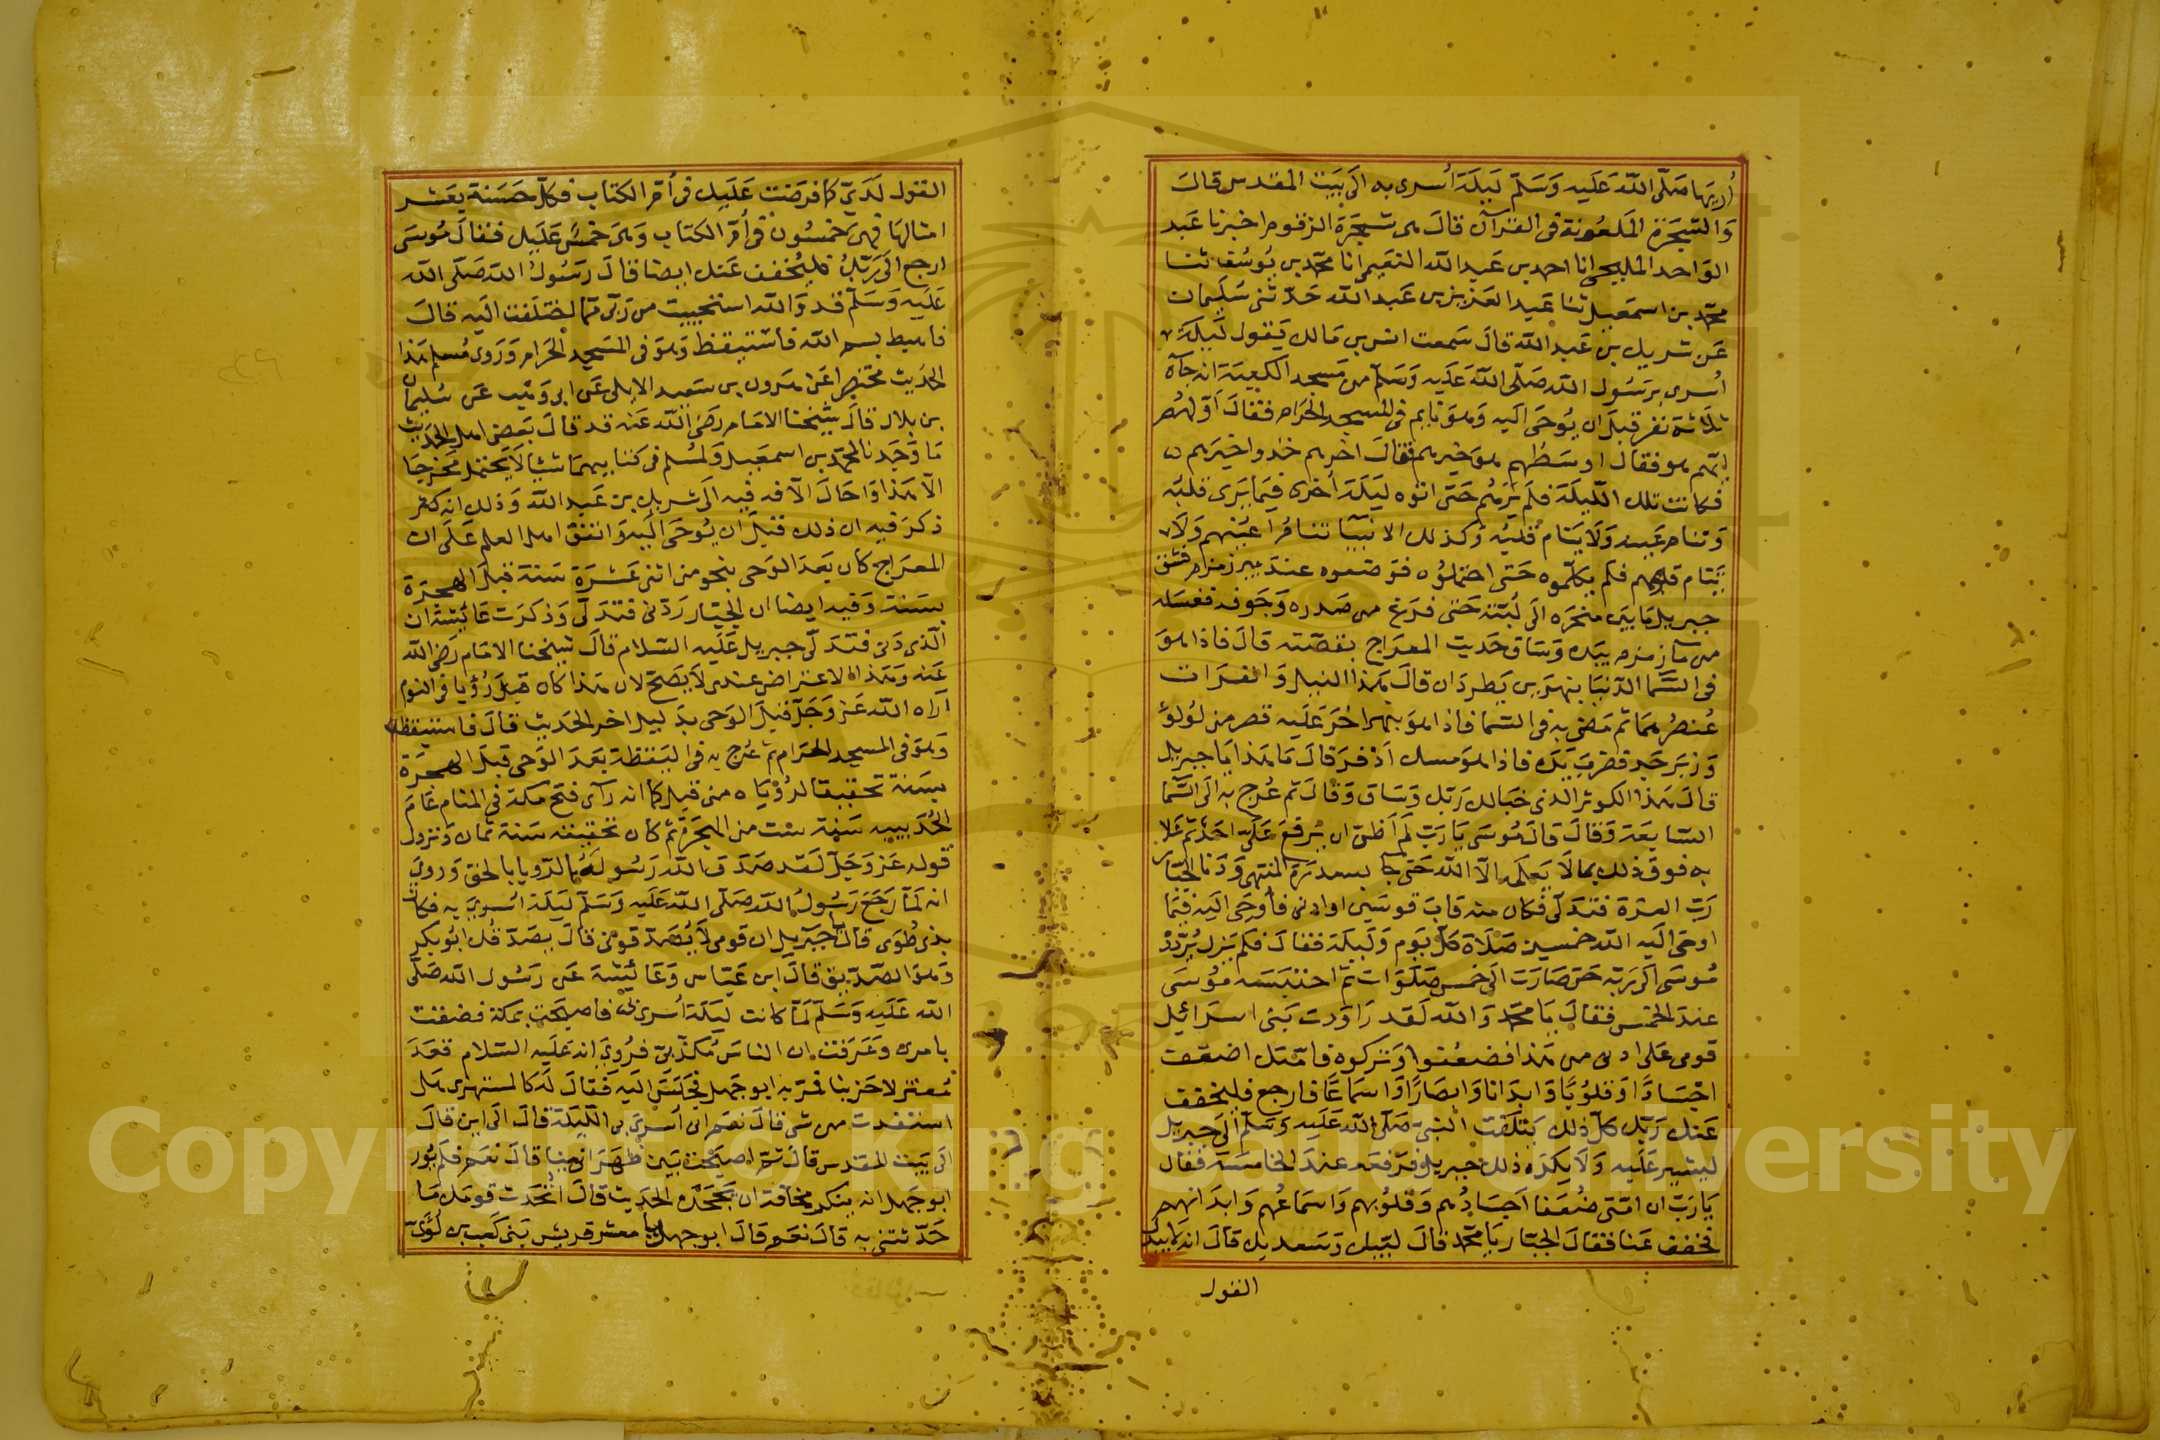 أُريها صلّى الله عليه وسلّم ليلة أسري به الى بيت المقدس قال
والشجرة الملعونة فى القرآن قال هى شجرة الزقوم اخبرنا عبد
الواحد المليحى انا احمد بن عبد الله النعيمى انا محمد بن يوسف ثنا
محمد بن اسمعيل ثنا عبد العزيز بن عبد الله حدّثنى سليمان
عن شريك بن عبد الله قال سمعت انس بن مالك يقول ليلة
أسرى برسول الله صلّى الله عليه وسلّم من مسجد الكعبة انه جآه
ثلاثة نفر قبل ان يُوحى اليه وهو نايم فى المسجد الحرام فقال اولهم
ايّهم هو فقال اوسطهم هو خيرهم فقال اخرهم خذوا خيرهم
فكانت تلك الليلة فلم يرهم حتى اتوه ليلة أخرى فيما يرى قلبه
وتنام عينه ولا ينام قلبه وكذلك الانبيآ تنام أعينهم ولا
تنام قلوبهم فلم يكلّموه حتى احتملوه فوضعوه عند بير زمزم فشق
جبريل ما بين منخره الى لُبّته حتى فرغ من صدره وجوفه فغسله
من مآ زمزم بيده وساق حديث المعراج بقصّته قال فاذا هو
فى السّمآ الدّنيا بنهرين يطردان قال هذا النيل والفرات
عُنصرُهما ثم مضى به فى السما فاذا هو بنهر اخر عليه قصر من لؤلؤ
وزبرجد فضرب يده فاذا هو مسك اذفر قال ما هذا يا جبريل
قال هذا الكوثر الذى خبا لك ربّك وساق وقال ثم عُرج به الى السّما
السّابعة وقال قال موسى يا ربّ لم أظنّ ان يُرفع علىّ احد ثم علا
به فوق ذلك بما لا يعلمه الا الله حتى جا سدرة المنتهى ودنا الجبّار
ربّ العزة فتدلّى فكان منه قاب قوسين او ادنى فأوحى اليه فيما
اوحى اليه الله خمسين صلاة كلّ يوم وليلة فقال فلم يزل يُردّدُ
مُوسى الى ربّه حتى صارت الى خمس صلوات ثم احتبسه موسى
عند الخمس فقال يا محمّد والله لقد راودت بنى اسرائيل
قومى على ادنى من هذا فضعُفوا وتركوه فامّتك اضعف
اجسادًا وقلوبًا وابدانا وابصارًا واسماعًا فارجع فليخفف
عنك ربّك كلّ ذلك يتلفّت النبىّ صلّى الله عليه وسلّم الى جبريل
ليشير عليه ولا يكره ذلك جبريل فرفعه عند الخامسة فقال
يا ربّ ان امّتى ضُعفا اجسادُهم وقلوبهم واسماعُهم وابدانهم
فخفف عنا فقال الجبّار يا محمّد قال لبّيك وسعديك قال انه لا يبدّل
القول
القول لدىّ كما فرضت عليك فى أمّ الكتاب فكلّ حسنة بعشر
امثالها فهى خمسُون فى أمّ الكتاب وهى خمسٌ عليك فقال مُوسى
ارجع الى ربّك فليُخفف عنك ايضا قال رسُولُ الله صلّى الله
عليه وسلّم قد والله استحييت من ربّى مما اختلفت اليه قال
فاهبط بسم الله فاستيقظ وهو فى المسجد الحرام وروى مُسلم هذا
الحديث مختصرا عن هرون بن سعيد الايلى عن ابن وهب عن سُليمان
بن بلال قال شيخنا الامام رضى الله عنه قد قال بعض اهل الحديث
ما وجدنا لمحمّد بن اسمعيل ولمسلم فى كتابيهما شيئا لا يحتمل مخرجا
الا هذا واحال الآفة فيه الى شريك بن عبد الله وذلك انه
ذكر فيه ان ذلك قبل ان يُوحى اليه واتفق اهل العلم على ان
المعراج كان بعد الوحى بنحو من اثنى عشرة سنة قبل الهجرة
بسنة وفيه ايضا ان الجبّار ردّ نى فتدلّى وذكرت عائشة ان
الّذى دنى فتدلّى جبريل عليه السّلام قال شيخنا الامام رضى الله
عنه وهذا الاعتراض عندى لا يصحّ لان هذا كان قبل رُؤيا فى النوم
آراه الله عزّ وجلّ قبل الوحى بدليل اخر الحديث قال فاستيقظ
وهو فى المسجد الحرام ثم عُرج به فى اليقظة بعد الوحى قبل الهجرة
بسنة تحقيقا لرُؤياه من قبل كما انه رآى فتح مكة فى المنام عام
الحُديبيه سنة ست من الهجرة ثم كان تحقيقه سنة ثمان ونزول
قوله عزّ وجلّ لقد صدق الله رسُوله الرّويا بالحق وروى
انه لمّا رجع رسُولُ الله صلّى الله عليه وسلّم ليلة اسرى به فكان
بذى طُوى قال يا جبريل ان قومى لا يُصدّقونى قال يصدّقك ابُو بكر
وهو الصّدّيق قال ابن عبّاس وعائشة عن رسُول الله صلّى
الله عليه وسلّم لمّا كانت ليلة أسرى بى فاصبحت بمكة فضقت
بامرى وعرفت ان الناس مُكذّبىّ فرُوى انه عليه السّلام قعد
مُعتزلا حزينا فمرّ به ابو جهل فجلس اليه فقال له كالمستهزى هل
استفدت من شى قال نعم انى أسرى بى الليلة قال الى اين قال
الى بيت المقدس قال ثم اصبحت بين ظهرانينا قال نعم فلم يُور
ابو جهل انه ينكر مخافة ان يجحده الحديث قال أتُحدّث قومك ما
حدّثتنى به قال نعم قال ابو جهل يا معشر قريش بنى كعب بن لُؤىّ
Copyright © King Saud University